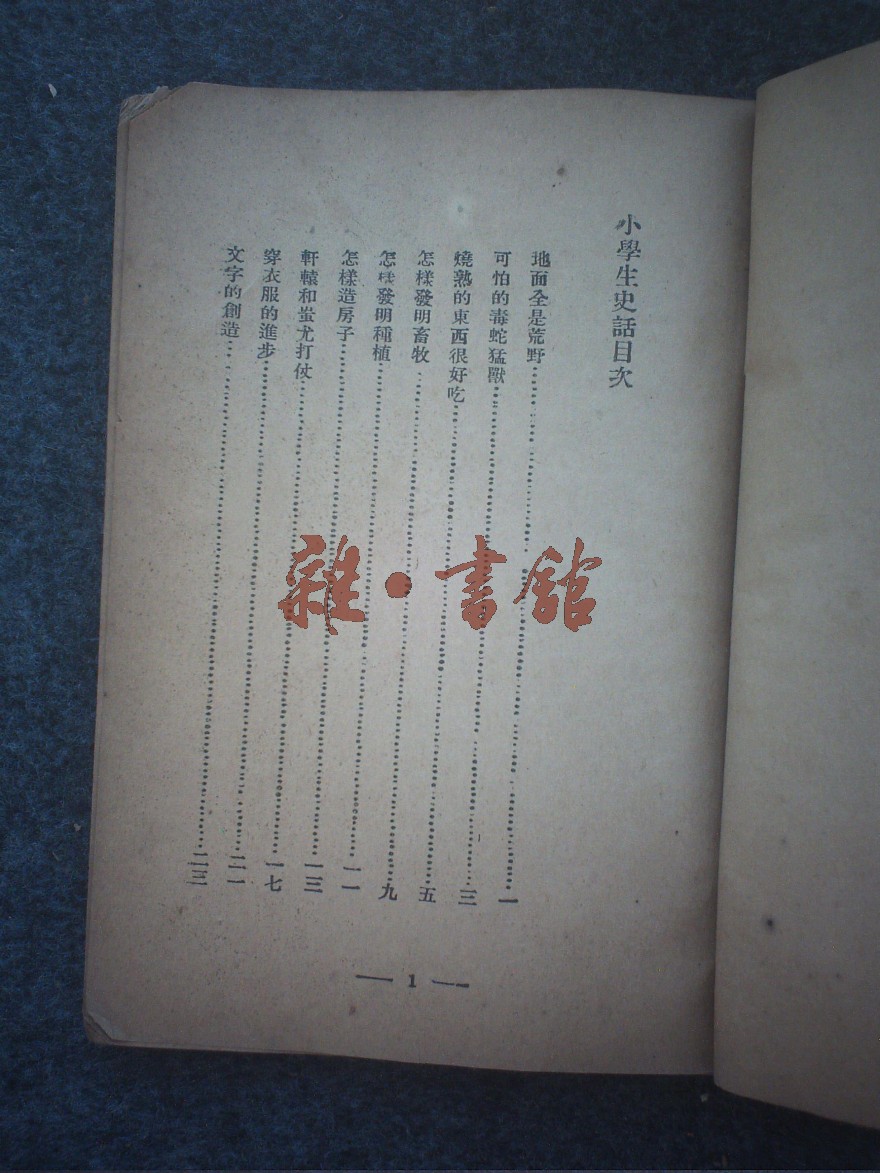 小學生史話目次
地面全是荒野……一
可怕的毒蛇猛獸……三
燒熟的東西很好吃……五
怎樣發明畜牧……九
怎樣發明種植……一一
怎樣造房子……一三
軒轅和蚩尤打仗……一七
穿衣服的進步……二一
文字的創造……二三
— 1 —
雜·書館